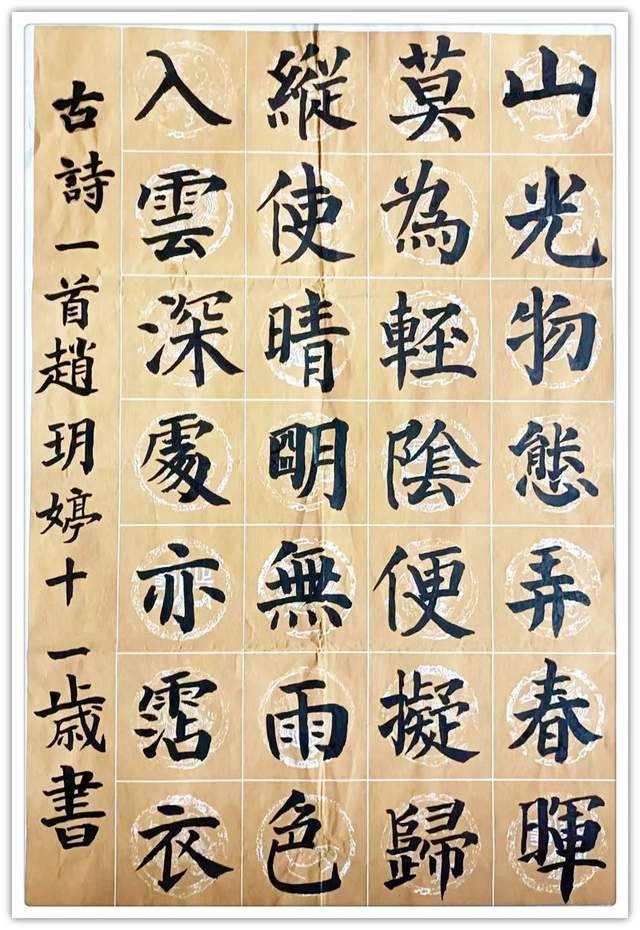 山光物態弄春暉
莫為輕陰便擬歸
縱使晴明無雨色
入雲深處亦霑衣
古詩一首趙玥婷十一歲書